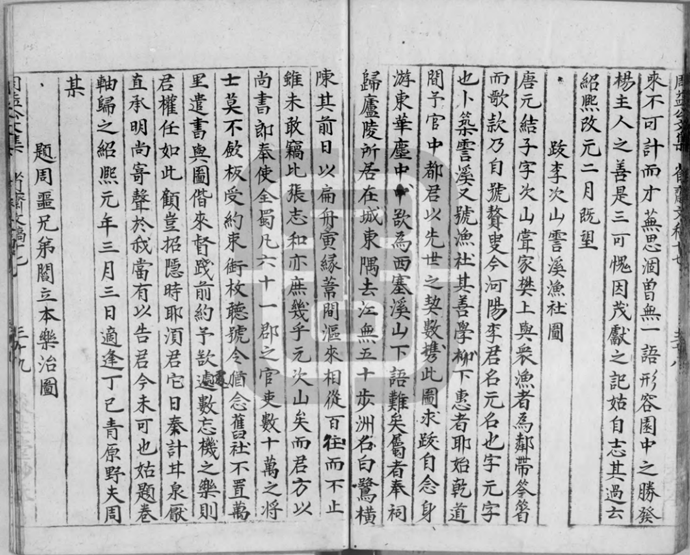 周益公文集 省齋文稿十七 三十八
來不可計而才蕪思涸曽無一語形容園中之勝發
楊主人之善是三可愧因茂獻之記姑自志其過云
紹熙改元二月既望
跋李次山雲溪漁社圖
唐元結子字次山甞家樊上與衆漁者爲鄰帶笭箵
而歌欸乃自號贅叟今河陽李君名元名也字元字
也卜築雲溪又號漁社其善學柳下惠者耶始乾道
間予官中都君以先世之契數攜此圖求跋自念身
游東華塵中欲爲西塞溪山下語難矣屬者奉祠
歸廬陵所居在城東隅去江無五十步洲名白鷺橫
陳其前日以扁舟寅縁葦間漚來相從百往而不止
雖未敢竊比張志和亦庶幾乎元次山矣而君方以
尚書郎奉使全蜀凡六十一郡之官吏數十萬之將
士莫不斂板受約束銜枚聽號令猶念舊社不置萬
里遣書與圖偕來督踐前約予欲遽數忘機之樂則
君權任如此顧豈招隱時耶須君它日奏計甘泉厭
直承明尚寄聲於我當有以告君今未可也姑題卷
軸歸之紹熙元年三月三日適逢丁巳青原野夫周
某
題周䛒兄弟閻立本樂治圖
周益公文集 省齋文稿十七 三十九